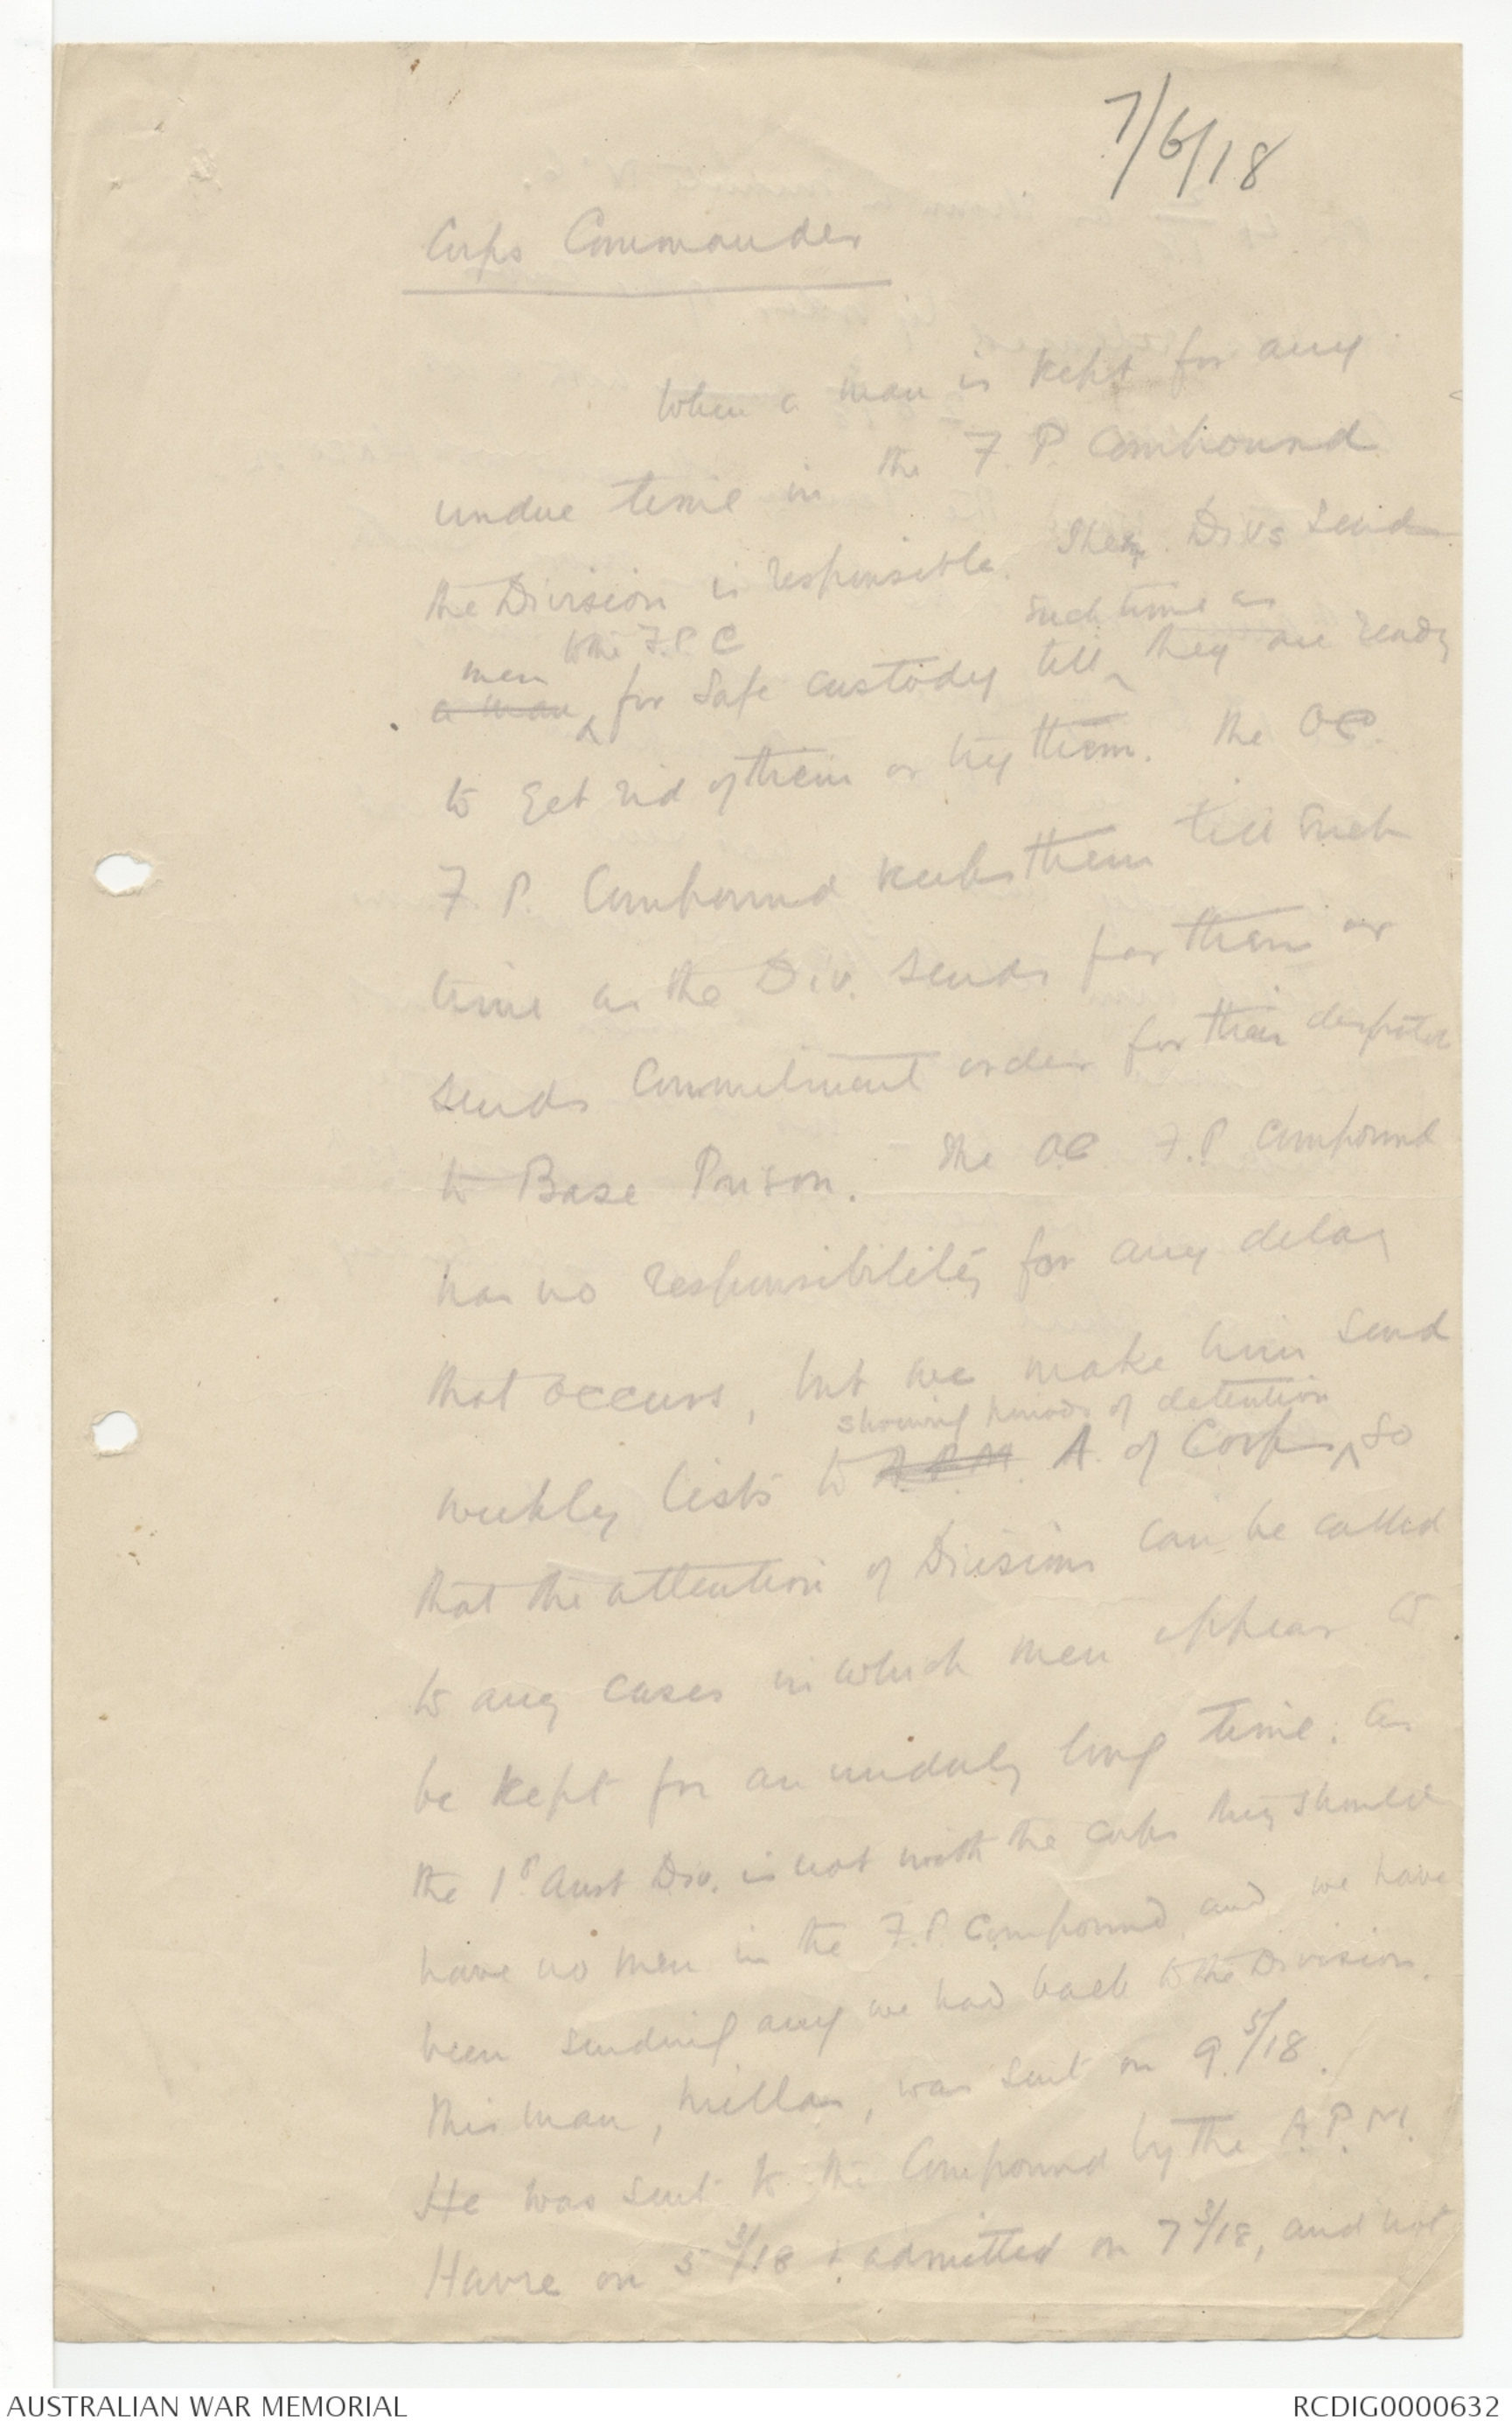 7/6/18
Corps Commander
When a man is kept for any
undue time in the F.P. Compound
the Division is responsible. Divs send
such time as
men to the F.P.C
a man for safe custody till they are ready
to get rid of them or try them. The OC.
F.P. Compound keeps them till such
time as the Div. sends for them or
sends Commitment order for their despatch
to Base Prison. The OC F.P Compound
has no responsibility for any delay
that occurs, but we make him send
showing periods of detention
weekly lists to A.P.M. A. of Corps so
that the attention of Divisions can be called
to any cases in which men appear to
be kept for an unduly long time. As
the 1st Aust Div. is not with the corps they should
have no men in the F.P. Compound and we have
been sending any we had back to the Division.
This man, Millar, was sent on 9.5/18.
He was sent to the Compound by the A.P.M.
Havre on 5 3/18 & admitted on 7 3/18, and not
AUSTRALIAN WAR MEMORIAL
RCDIG0000632